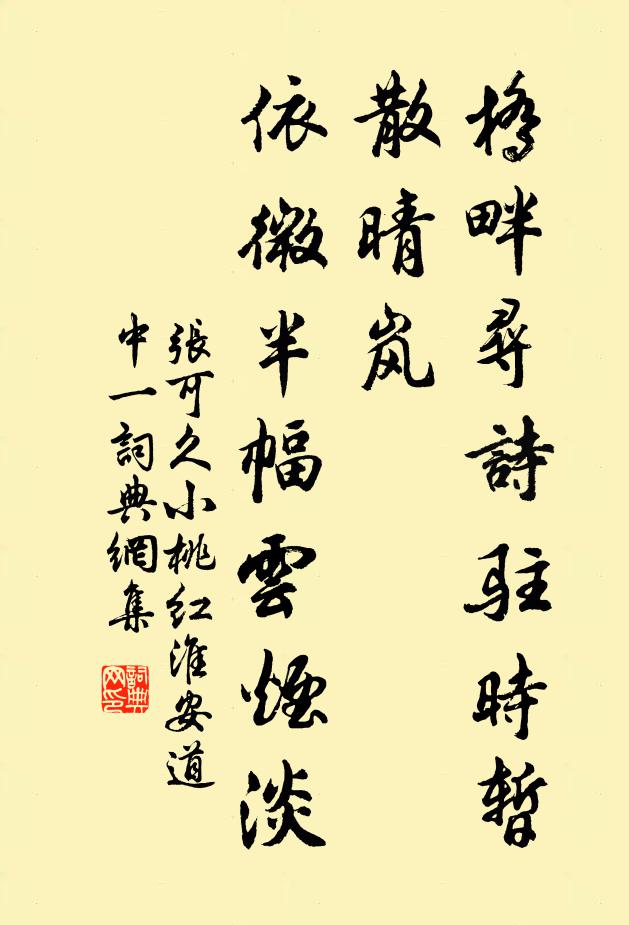 橋畔尋詩駐時暫
散晴岚
依微半幅雲煙淡
張可久小桃红淮安道
中一詞典網集
詞典
网印